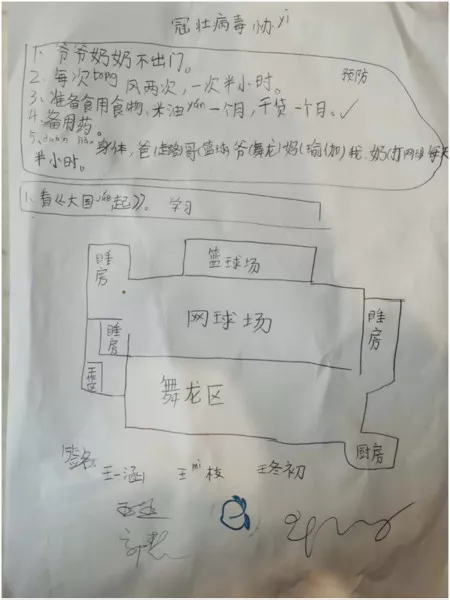 冠壮病毒协yi
1、爷爷奶奶不出门。
2、每次tong风两次，一次半小时。
预防
3、准备食用食物，米油yán一个月，干货一个月。✓
4、备用药。
5、duàn liàn身体，爸 哥(篮球)爷(舞龙)妈(瑜伽)我、奶(打网球)每天
半小时。
1、看《大国jué起》。 学习
睡房
篮球场
网球场
睡房
睡房
舞龙区
厨房
签名
王一涵
王 枝
王冬初